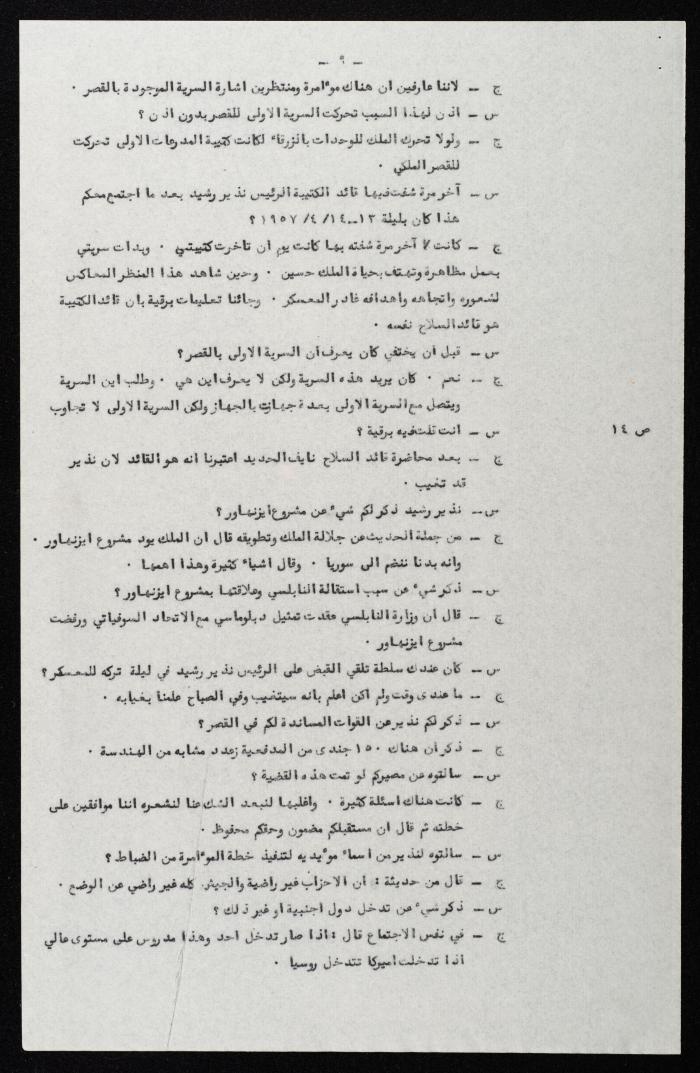 — ٩ —
ج — لاننا عارفين ان هناك موٴامرة ومنتظرين اشارة السرية الموجودة بالقصر .
س — اذن لهذا السبب تحركت السرية الاولى للقصر بدون اذن ؟
ج — ولولا تحرك الملك للوحدات بالزرقاء لكانت كتيبة المدرعات الاولى تحركت
للقصر الملكي .
س — آخر مرة شفت فيها قائد الكتيبة الرئيس نذير رشيد بعد ما اجتمع معكم
هذا كان بليلة ١٣ــ١٤/ ٤/ ١٩٥٧ ؟
ج — كانت آخر مرة شفته بها كانت يوم أن تاخرت كتيبتي . وبدات سريتي
بعمل مظاهرة وتهتف بحياة الملك حسين . وحين شاهد هذا المنظر المعاكس
لشعوره واتجاهه واهدافه غادر المعسكر . وجائنا تعليمات برقية بان قائد الكتيبة
هو قائد السلاح نفسه .
س — قبل أن يختفي كان يعرف أن السرية الاولى بالقصر ؟
ج — نعم . كان يريد هذه السرية ولكن لا يعرف اين هي . وطلب اين السرية
ويتصل مع السرية الاولى بعدة جهازت بالجهاز ولكن السرية الاولى لا تجاوب
ص ١٤
س — انت تلقيه برقية ؟
ج — بعد محاضرة قائد السلاح نايف الحديد اعتبرنا انه هو القائد لان نذير
قد تغيب .
س — نذير رشيد ذكر لكم شيء عن مشروع ايزنهاور ؟
ج — من جملة الحديث عن جلالة الملك وتطويقه قال ان الملك يود مشروع ايزنهاور .
وانه بدنا ننضم الى سوريا . وقال اشياء كثيرة وهذا اهمها .
س — ذكر شيء عن سبب استقالة النابلسي وعلاقتها بمشروع ايزنهاور ؟
ج — قال أن وزارة النابلسي عقدت تمثيل دبلوماسي مع الاتحاد السوفياتي ورفضت
مشروع ايزنهاور .
س — كان عندك سلطة تلقي القبض على الرئيس نذير رشيد في ليلة تركه للمعسكر ؟
ج — ما عندي وقت ولم اكن اعلم بانه سيتغيب وفي الصباح علمنا بغيابه .
س — ذكر لكم نذير عن القوات المساندة لكم في القصر ؟
ج — ذكر أن هناك ١٥٠ جندى من المدفعية وعدد مشابه من الهندسة .
س — سالتوه عن مصيركم لو تمت هذه القضية ؟
ج — كانت هناك اسئلة كثيرة . واغلبها لنبعد الشك عنا لنشعره اننا موافقين على
خطته ثم قال ان مستقبلكم مضمون وحقكم محفوظ .
س — سالتوه لنذير من اسماء موٴيديه لتنفيذ خطة الموٴامرة من الضباط ؟
ج — قال من حديثة : أن الاحزاب غير راضية والجيش كله غير راضي عن الوضع .
س — ذكر شيء عن تدخل دول اجنبية او غير ذلك ؟
ج — في نفس الاجتماع قال : اذا صار تدخل احد وهذا مدروس على مستوى عالي
اذا تدخلت اميركا تتدخل روسيا .